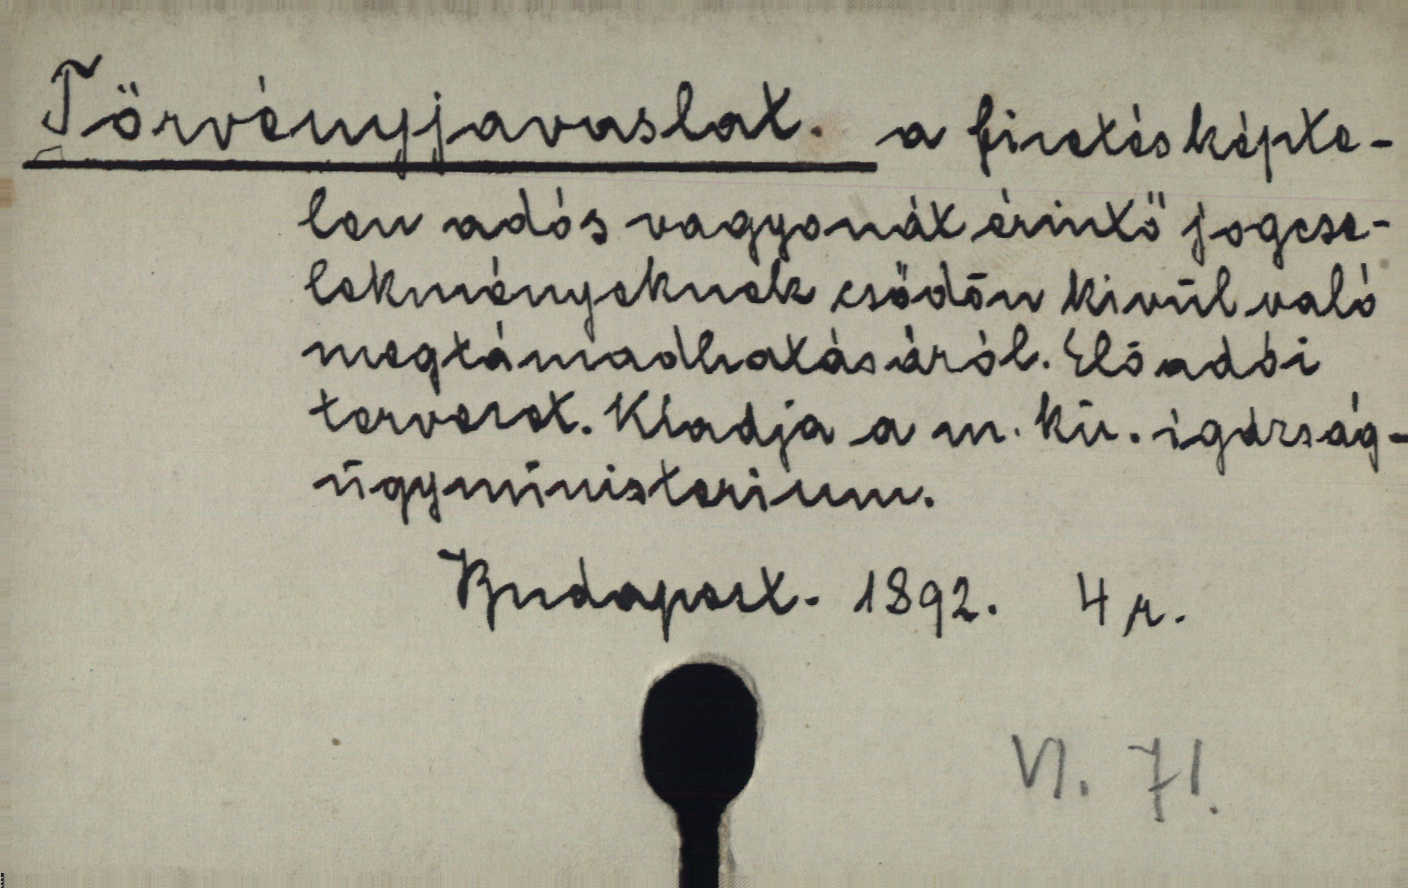 Törvényjavaslat. a fizetésképte-
len adós vagyonát érintő jogcse-
lekményeknek csődön kivül való
megtámadhatásáról. Előadói
tervezet. Kiadja a m. kir. igazság-
ügyministerium.
Budapest. 1892. 4 r.
VI. 71.